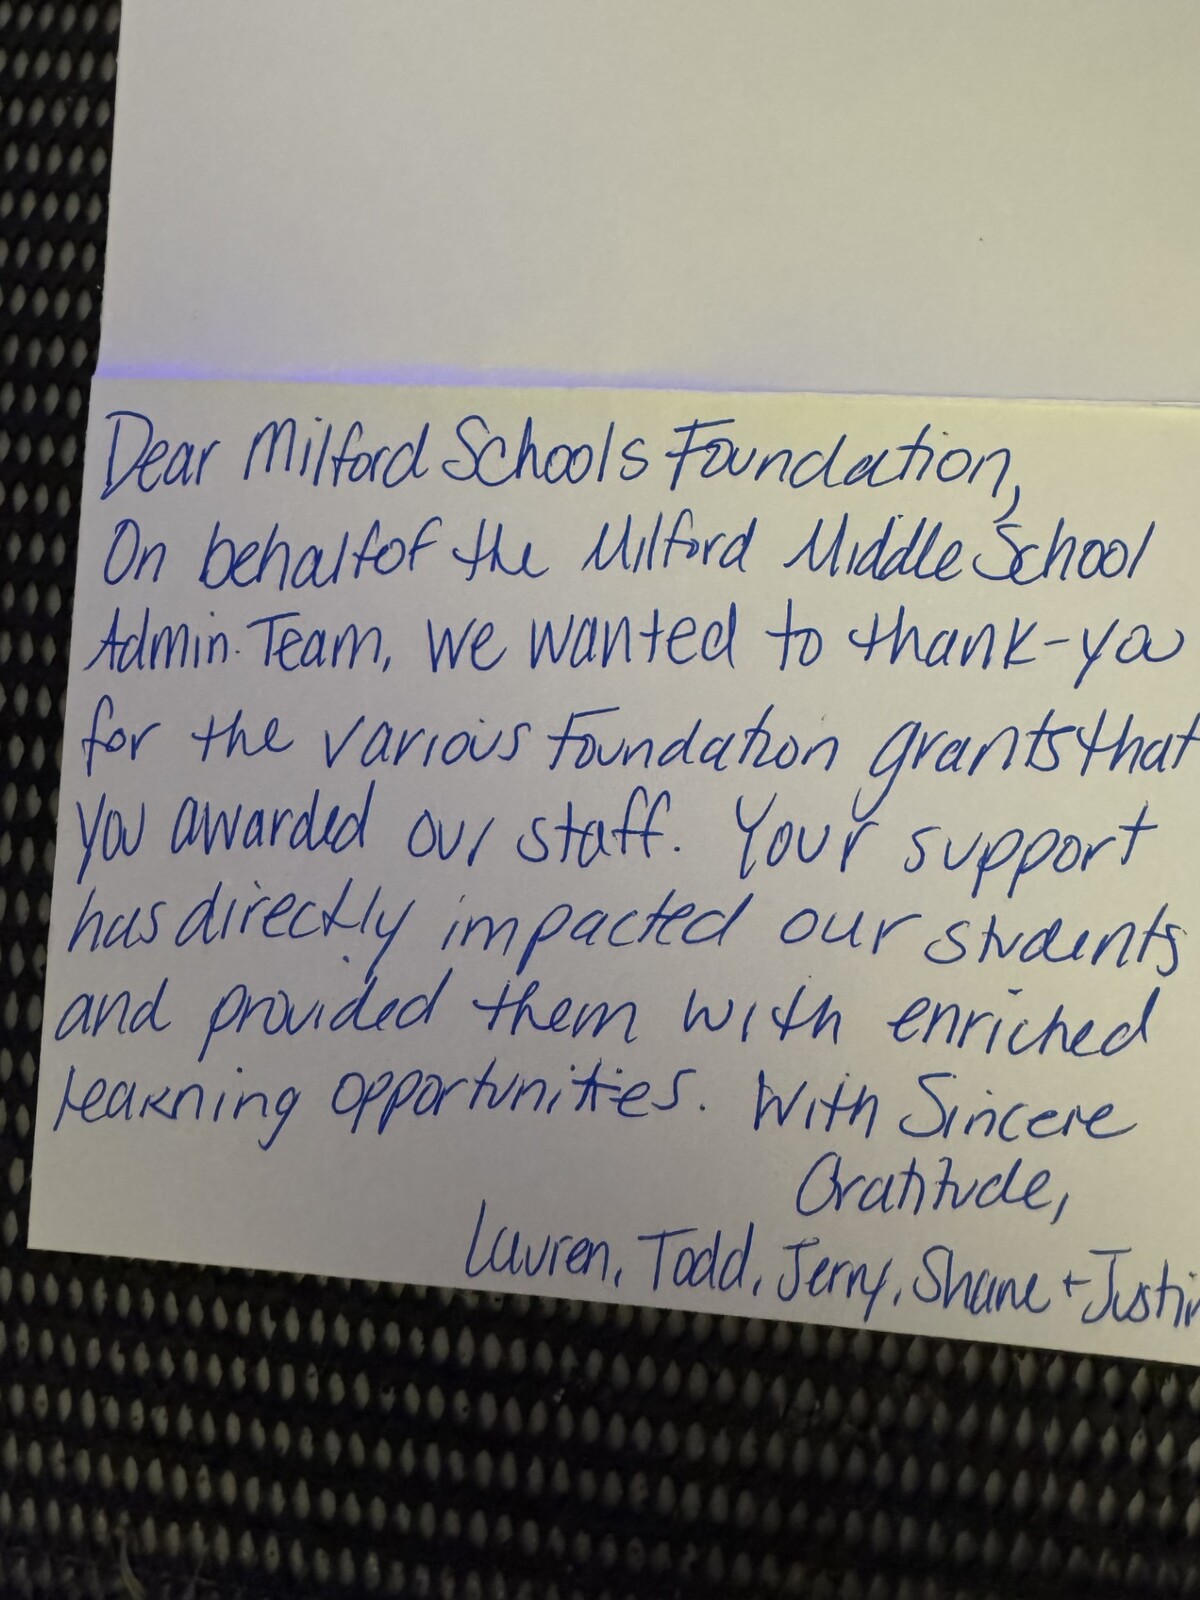 Dear Milford Schools Foundation,
On behalf of the Milford Middle School
Admin. Team, we wanted to thank-you
for the various Foundation grants that
you awarded our staff. Your support
has directly impacted our students
and provided them with enriched
learning opportunities. With Sincere
Gratitude,
Lauren, Todd, Jerry, Shane + Justin